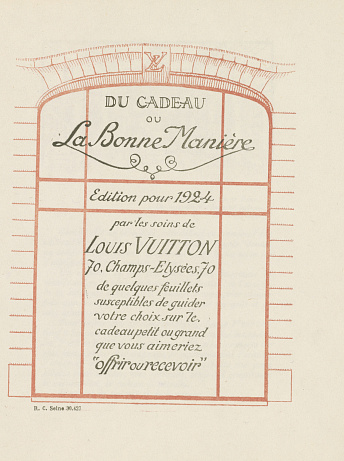 LV
DU CADEAU
OU
La Bonne Manière
Edition pour 1924
par les soins de
LOUIS VUITTON
70, Champs-Elysées, 70
de quelques feuillets
susceptibles de guider
votre choix sur le.
cadeau petit ou grand
que vous aimeriez
"offrir ou recevoir"
R. C. Seine 30.421